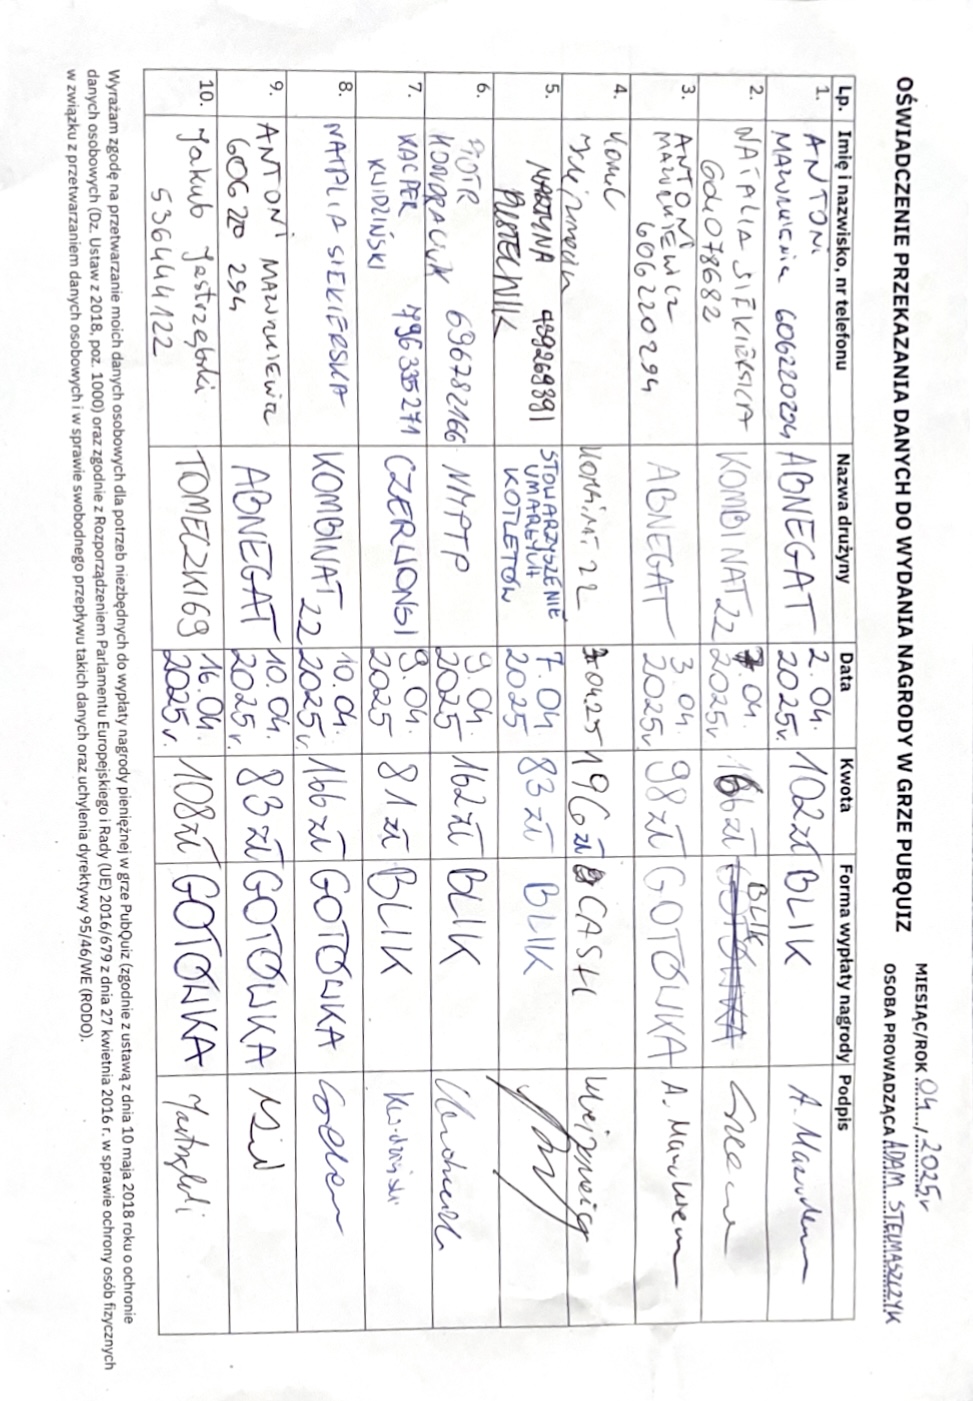 OŚWIADCZENIE PRZEKAZANIA DANYCH DO WYDANIA NAGRODY W GRZE PUBQUIZ
MIESIĄC/ROK 04/2025r
OSOBA PROWADZĄCA ADAM STELMASZCZYK
Lp. Imię i nazwisko, nr telefonu Nazwa drużyny Data Kwota Forma wypłaty nagrody Podpis
1. ANTONI 606220294 ABNEGAT 2.04. 2025r. 102zł BLIK
2. NATALIA SIEKIERSKA 604078682 KOMBINAT 22 04. 2025r 166zł BLIK
3. ANTONI MAZURKIEWICZ 606220294 ABNEGAT 3.04. 2025r 98zł GOTÓWKA
4. KOMBINAT 22 04.25 196zł CASH
5. MARTYNA PUSTELNIK STOWARZYSZENIE UMARŁYCH KOTLETÓW 7.04 2025 83zł BLIK
6. PIOTR 696782166 NMPTP 9.04. 2025 162zł BLIK
7. KACPER KUDZIŃSKI 796335271 CZERWONSI 9.04. 2025 81zł BLIK
8. NATALIA SIEKIERSKA KOMBINAT 22 10.04. 2025r 166zł GOTÓWKA
9. ANTONI MAZURKIEWICZ 606220294 ABNEGAT 10.04. 2025r. 83zł GOTÓWKA
10. Jakub Jastrzębski 536444122 TOMECZKI69 16.04. 2025r. 108zł GOTÓWKA
Wyrażam zgodę na przetwarzanie moich danych osobowych dla potrzeb niezbędnych do wypłaty nagrody pieniężnej w grze PubQuiz (zgodnie z ustawą z dnia 10 maja 2018 roku o ochronie
danych osobowych (Dz. Ustaw z 2018, poz. 1000) oraz zgodnie z Rozporządzeniem Parlamentu Europejskiego i Rady (UE) 2016/679 z dnia 27 kwietnia 2016 r. w sprawie ochrony osób fizycznych
w związku z przetwarzaniem danych osobowych i w sprawie swobodnego przepływu takich danych oraz uchylenia dyrektywy 95/46/WE (RODO).